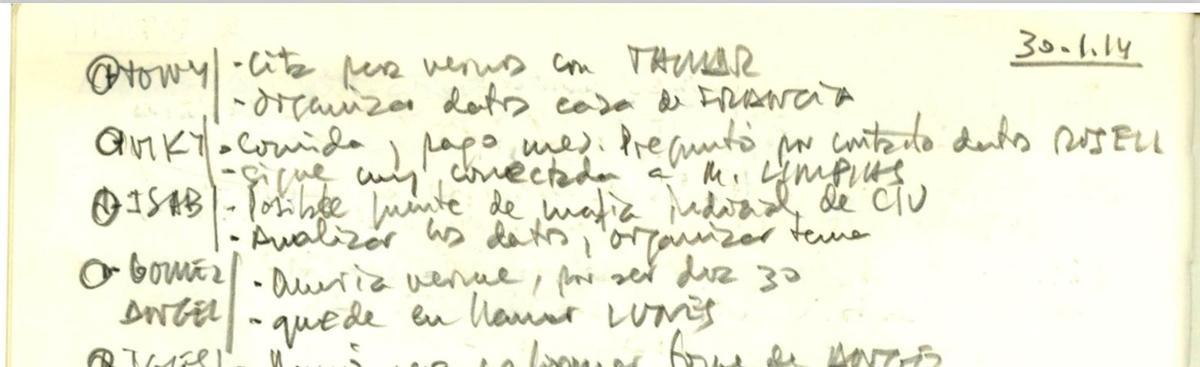 30-1-14
TONY - Cita para vernos con TAMAR
- organizar datos casa de FRANCIA
VIKI - Comida, pago mes. Preguntó por contacto datos ROSELL
- sigue muy conectada a M. LIMPIAS
ISAB - Posible fuente de mafia judicial de CIU
- Analizar los datos, organizar tema
GOMEZ - Queria verme, por ser dia 30
ANGEL - quede en llamar LUNES
forma de